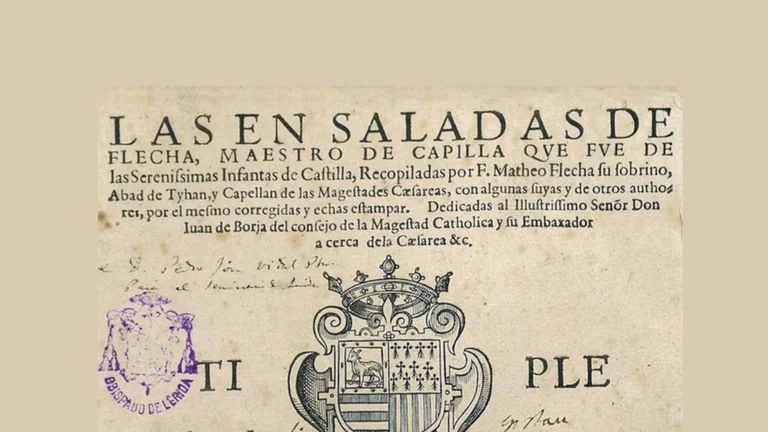 LAS EN SALADAS DE
FLECHA, MAESTRO DE CAPILLA QVE FVE DE
las Serenissimas Infantas de Castilla, Recopiladas por F. Matheo Flecha su sobrino,
Abad de Tyhan, y Capellan de las Magestades Cæsareas, con algunas suyas y de otros autho-
res, por el mesmo corregidas y echas estampar. Dedicadas al Illustrissimo Senõr Don
Iuan de Borja del consejo de la Magestad Catholica y su Embaxador
a cerca dela Cæsarea &c.
D. Pedro
el
TI PLE
OBISPADO DE LÉRIDA